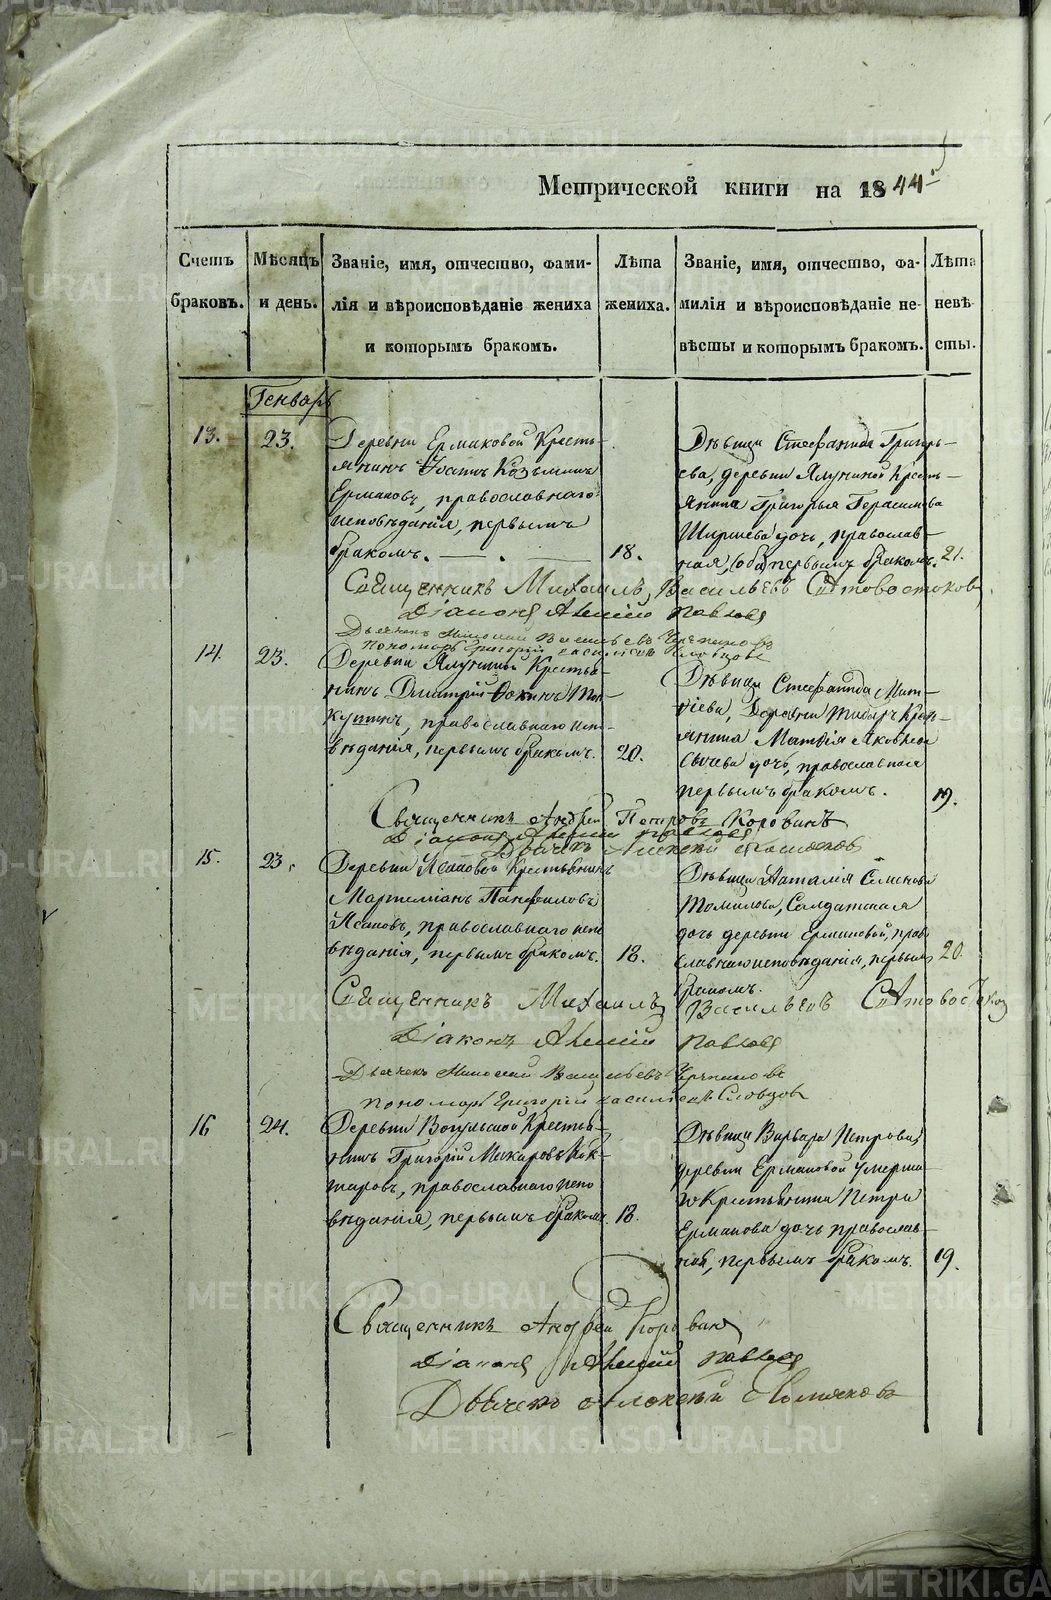 Метрической книги на 1844
Счетъ браковъ.
Мѣсяцъ и день.
Званіе, имя, отчество, фами-
лія и вѣроисповѣданіе жениха
и которымъ бракомъ.
Лѣта жениха.
Званіе, имя, отчество, фа-
милія и вѣроисповѣданіе не-
вѣсты и которымъ бракомъ.
Лѣта невѣ-
сты.
Генварь
13.
23.
Деревни Ермаковой Кресть-
янинъ Козьминъ
Ермаковъ, православнаго
исповѣданія, первымъ
бракомъ.
18.
Дѣвица Стефанида Григорь-
ева, деревни Ялуниной Кресть-
янина Григорья Герасимова
дочь, православ-
ная, (оба) первымъ бракомъ.
21.
Священникъ Михаилъ Васильевъ
Діаконъ Павловъ
Дьячекъ Васильевъ
пономарь Григорій Васильевъ Словцовъ
14.
23.
Деревни Ялуниной Крестья-
нинъ Дмитрій
православнаго испо-
вѣданія, первымъ бракомъ.
20.
Дѣвица Стефанида Мат-
ѳіева, Деревни Кресть-
янина Матѳія Яковлева
Сычева дочь, православная
первымъ бракомъ.
19.
Священникъ Андрей Петровъ Коровинъ
Діаконъ Павловъ
Дьячекъ Алексѣй
15.
23.
Деревни Исаковой Крестьянинъ
Мартеміанъ Панфиловъ
Исаковъ, православнаго испо
вѣданія, первымъ бракомъ.
18.
Дѣвица Наталія Семенова
Томилова, Солдатская
дочь деревни Ермаковой, право
славнаго исповѣданія, первымъ
бракомъ.
20.
Священникъ Михаилъ Васильевъ
Діаконъ Павловъ
Дьячекъ Васильевъ
пономарь Григорій Васильевъ Словцовъ
16
24.
Деревни Вогульской Крестья-
нинъ Григорій Макаровъ Кок-
шаровъ, православнаго испо
вѣданія, первымъ бракомъ.
18.
Дѣвица Варвара Петрова,
деревни Ермаковой умерша-
го Крестьянина Петра
Ермакова дочь православ-
ной, первымъ бракомъ.
19.
Священникъ Андрей Коровинъ
Діаконъ Павловъ
Дьячекъ Алексѣй
METRIKI.GASO-URAL.RU